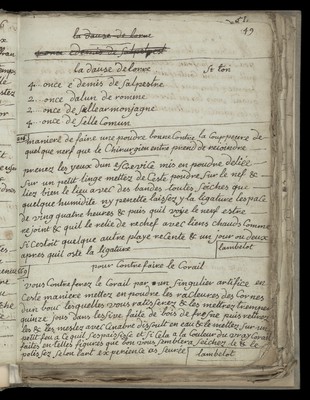 la dause de lorre
once e demies de salpestre
la dause de lorre
4 once e demies de salpestre
2 once dalun de romme
2 once de selle armonjagne
4 once de selle Comun
maniere de faire une poudre bonne Contre la Coupeure de
quelque nerf que le Chirurgien entre prend de rejoindre
prenez les yeux dun mis en poudre deliée
sur un petit linge mettez de Ceste poudre, sur le nerf &
liez bien le lieu avec des bandes toutes seiches que
quelque humidite ny penette laissez y la ligature lespace
de ving quatre heures & puis quil voije le nerf estre
rejoint & quil le relie de rechef avec liens chauds Comme
si Cestoit quelque autre playe recente & un jour ou deux
apres quil oste la ligature
lambelot
pour Contrefaire le Corail
vous Contreferez le Corail par un singulier artifice en
Ceste maniere mettez en poudre les raclures des Cornes
dun bouc lesquelles vous & les mettrez tremper
quinze jours dans lessive faite de bois de fresne puis
les & les meslez avec Cinabre dissout en eau & le mettez sur un
petit feu a Ce quil sespaississe & si Cela a la Couleur du vray Corail
faites en telles figures que bon vous semblera seichez le & le
polissez selon lart
lambelot